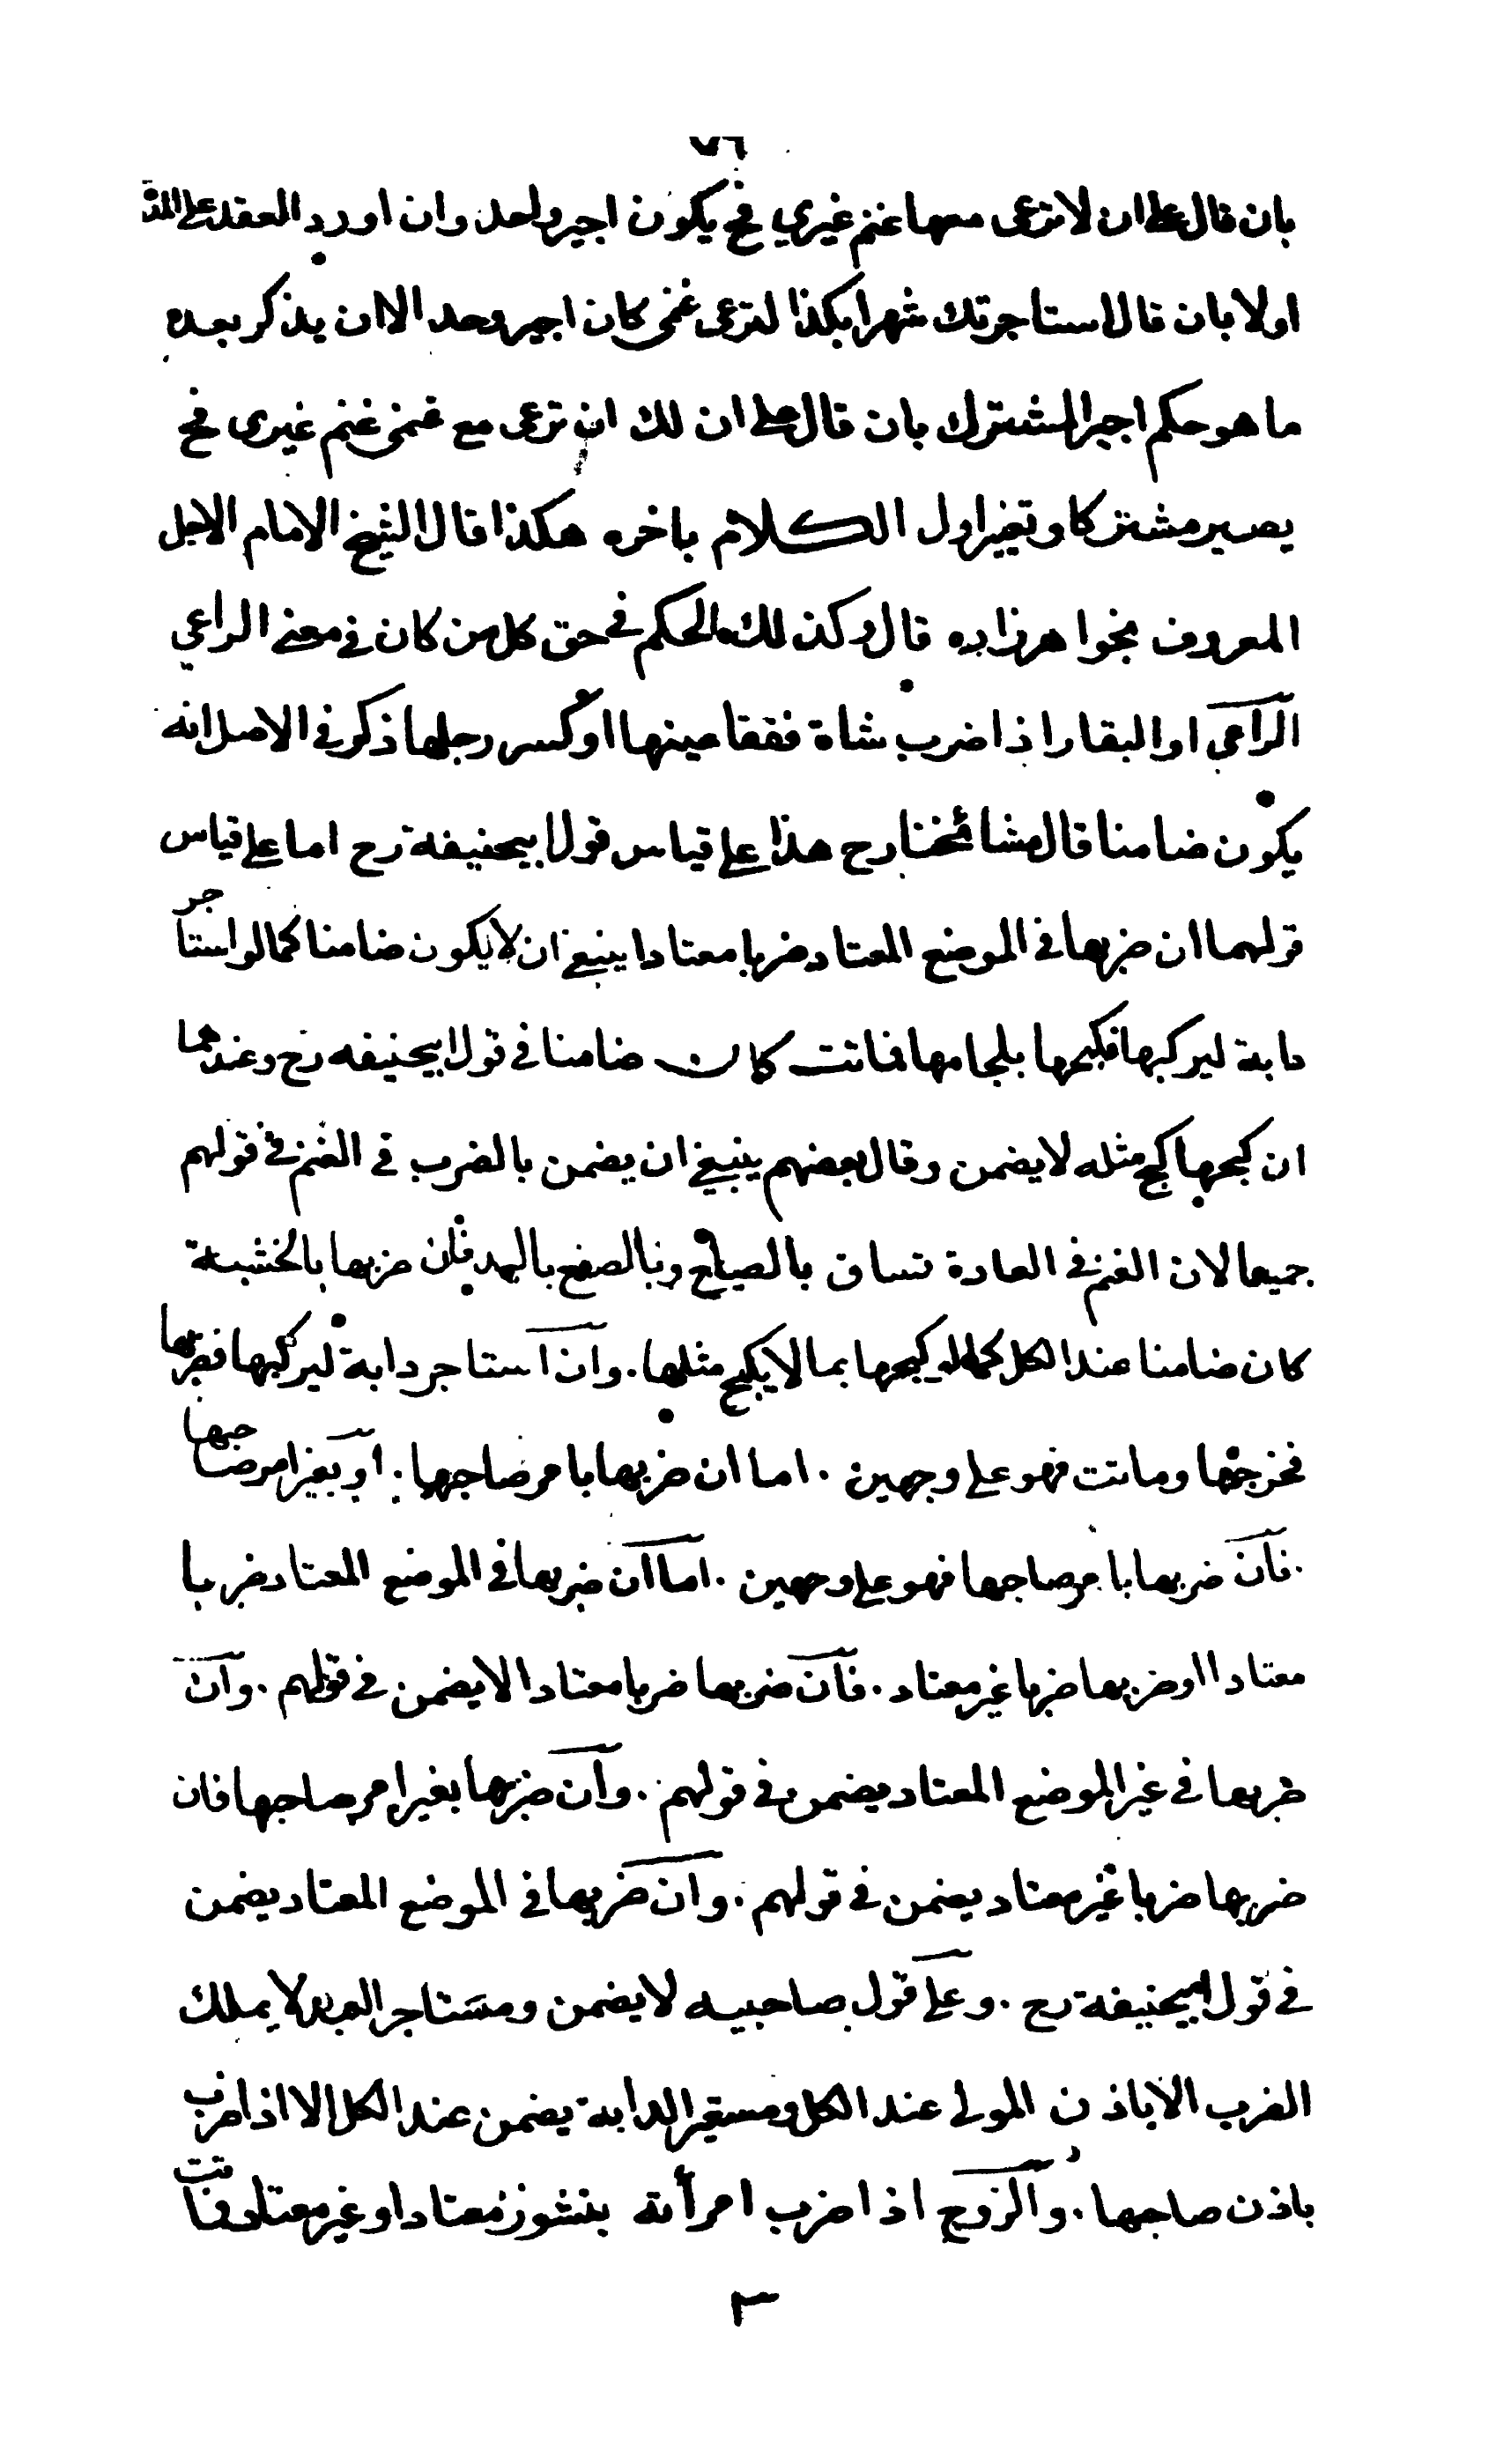 ٧٦
بان قال على ان لا ترعى معها غنم غيري فح يكون اجير واحد وان اورد العقد على المدة
اولا بان قال استاجرتك شهرا بكذا لترعى غنمى كان اجير وحد الا ان يذكر بعده
ما هو حكم اجير المشترك بان قال على ان لك ان ترعى مع غنمى غنم غيرى فح
يصير مشتركا وتغير اول الكلام باخره هكذا قال الشيخ الامام الاجل
المعروف بخواهرزاده قال وكذلك الحكم فى حق كل من كان فى معنى الراعي
الراعى او البقار اذا ضرب شاة ففقا عينها او كسر رجلها ذكر فى الاصل انه
يكون ضامنا قال مشائخنا رح هذا على قياس قول ابيحنيفة رح اما على قياس
قولهما ان ضربها فى الموضع المعتاد ضربا معتادا ينبغى ان لا يكون ضامنا كما لو استاجر
دابة ليركبها فكبحها بلجامها فماتت كان ضامنا فى قول ابيحنيفه رح وعندهما
ان كبحها كبح مثله لا يضمن وقال بعضهم ينبغى ان يضمن بالضرب فى الغنم فى قولهم
جميعا لان الغنم فى العادة تساق بالصياح وبالصفع باليد فان ضربها بالخشبة
كان ضامنا عند الكل كما لو كبحها بما لا يكبح مثلها. وان استاجر دابة ليركبها فضربها
فخرجتها وماتت فهو على وجهين . اما ان ضربها بامر صاحبها. او بغير امر صاحبها
. فان ضربها بامر صاحبها فهو على وجهين . اما ان ضربها فى الموضع المعتاد ضربا
معتادا او ضربها ضربا غير معتاد . فان ضربها ضربا معتادا لا يضمن فى قولهم . وان
ضربها فى غير الموضع المعتاد يضمن فى قولهم . وان ضربها بغير امر صاحبها فان
ضربها ضربا غير معتاد يضمن فى قولهم . وان ضربها فى الموضع المعتاد يضمن
فى قول ابيحنيفة رح . وعلى قول صاحبيه لا يضمن ومستاجر العبد لا يملك
الضرب الا باذن المولى عند الكل ومستعير الدابة يضمن عند الكل الا اذا ضرب
باذن صاحبها . والزوج اذا ضرب امرأته بنشوز معتادا او غير معتاد فماتت
٣